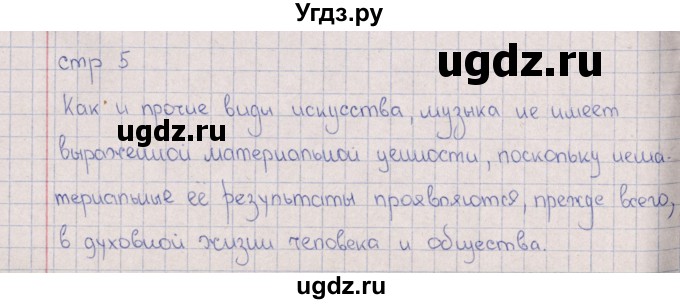 Угдз.ру
стр 5
ugdz.ru
Как и прочие види искусства, музыка не имеет
ugdz.ru
выраженной материальной ценности, поскольку нема-
териальные её результаты проявляются, прежде всего,
ugdz.ru
в духовной жизни человека и общества.
ugdz.ru